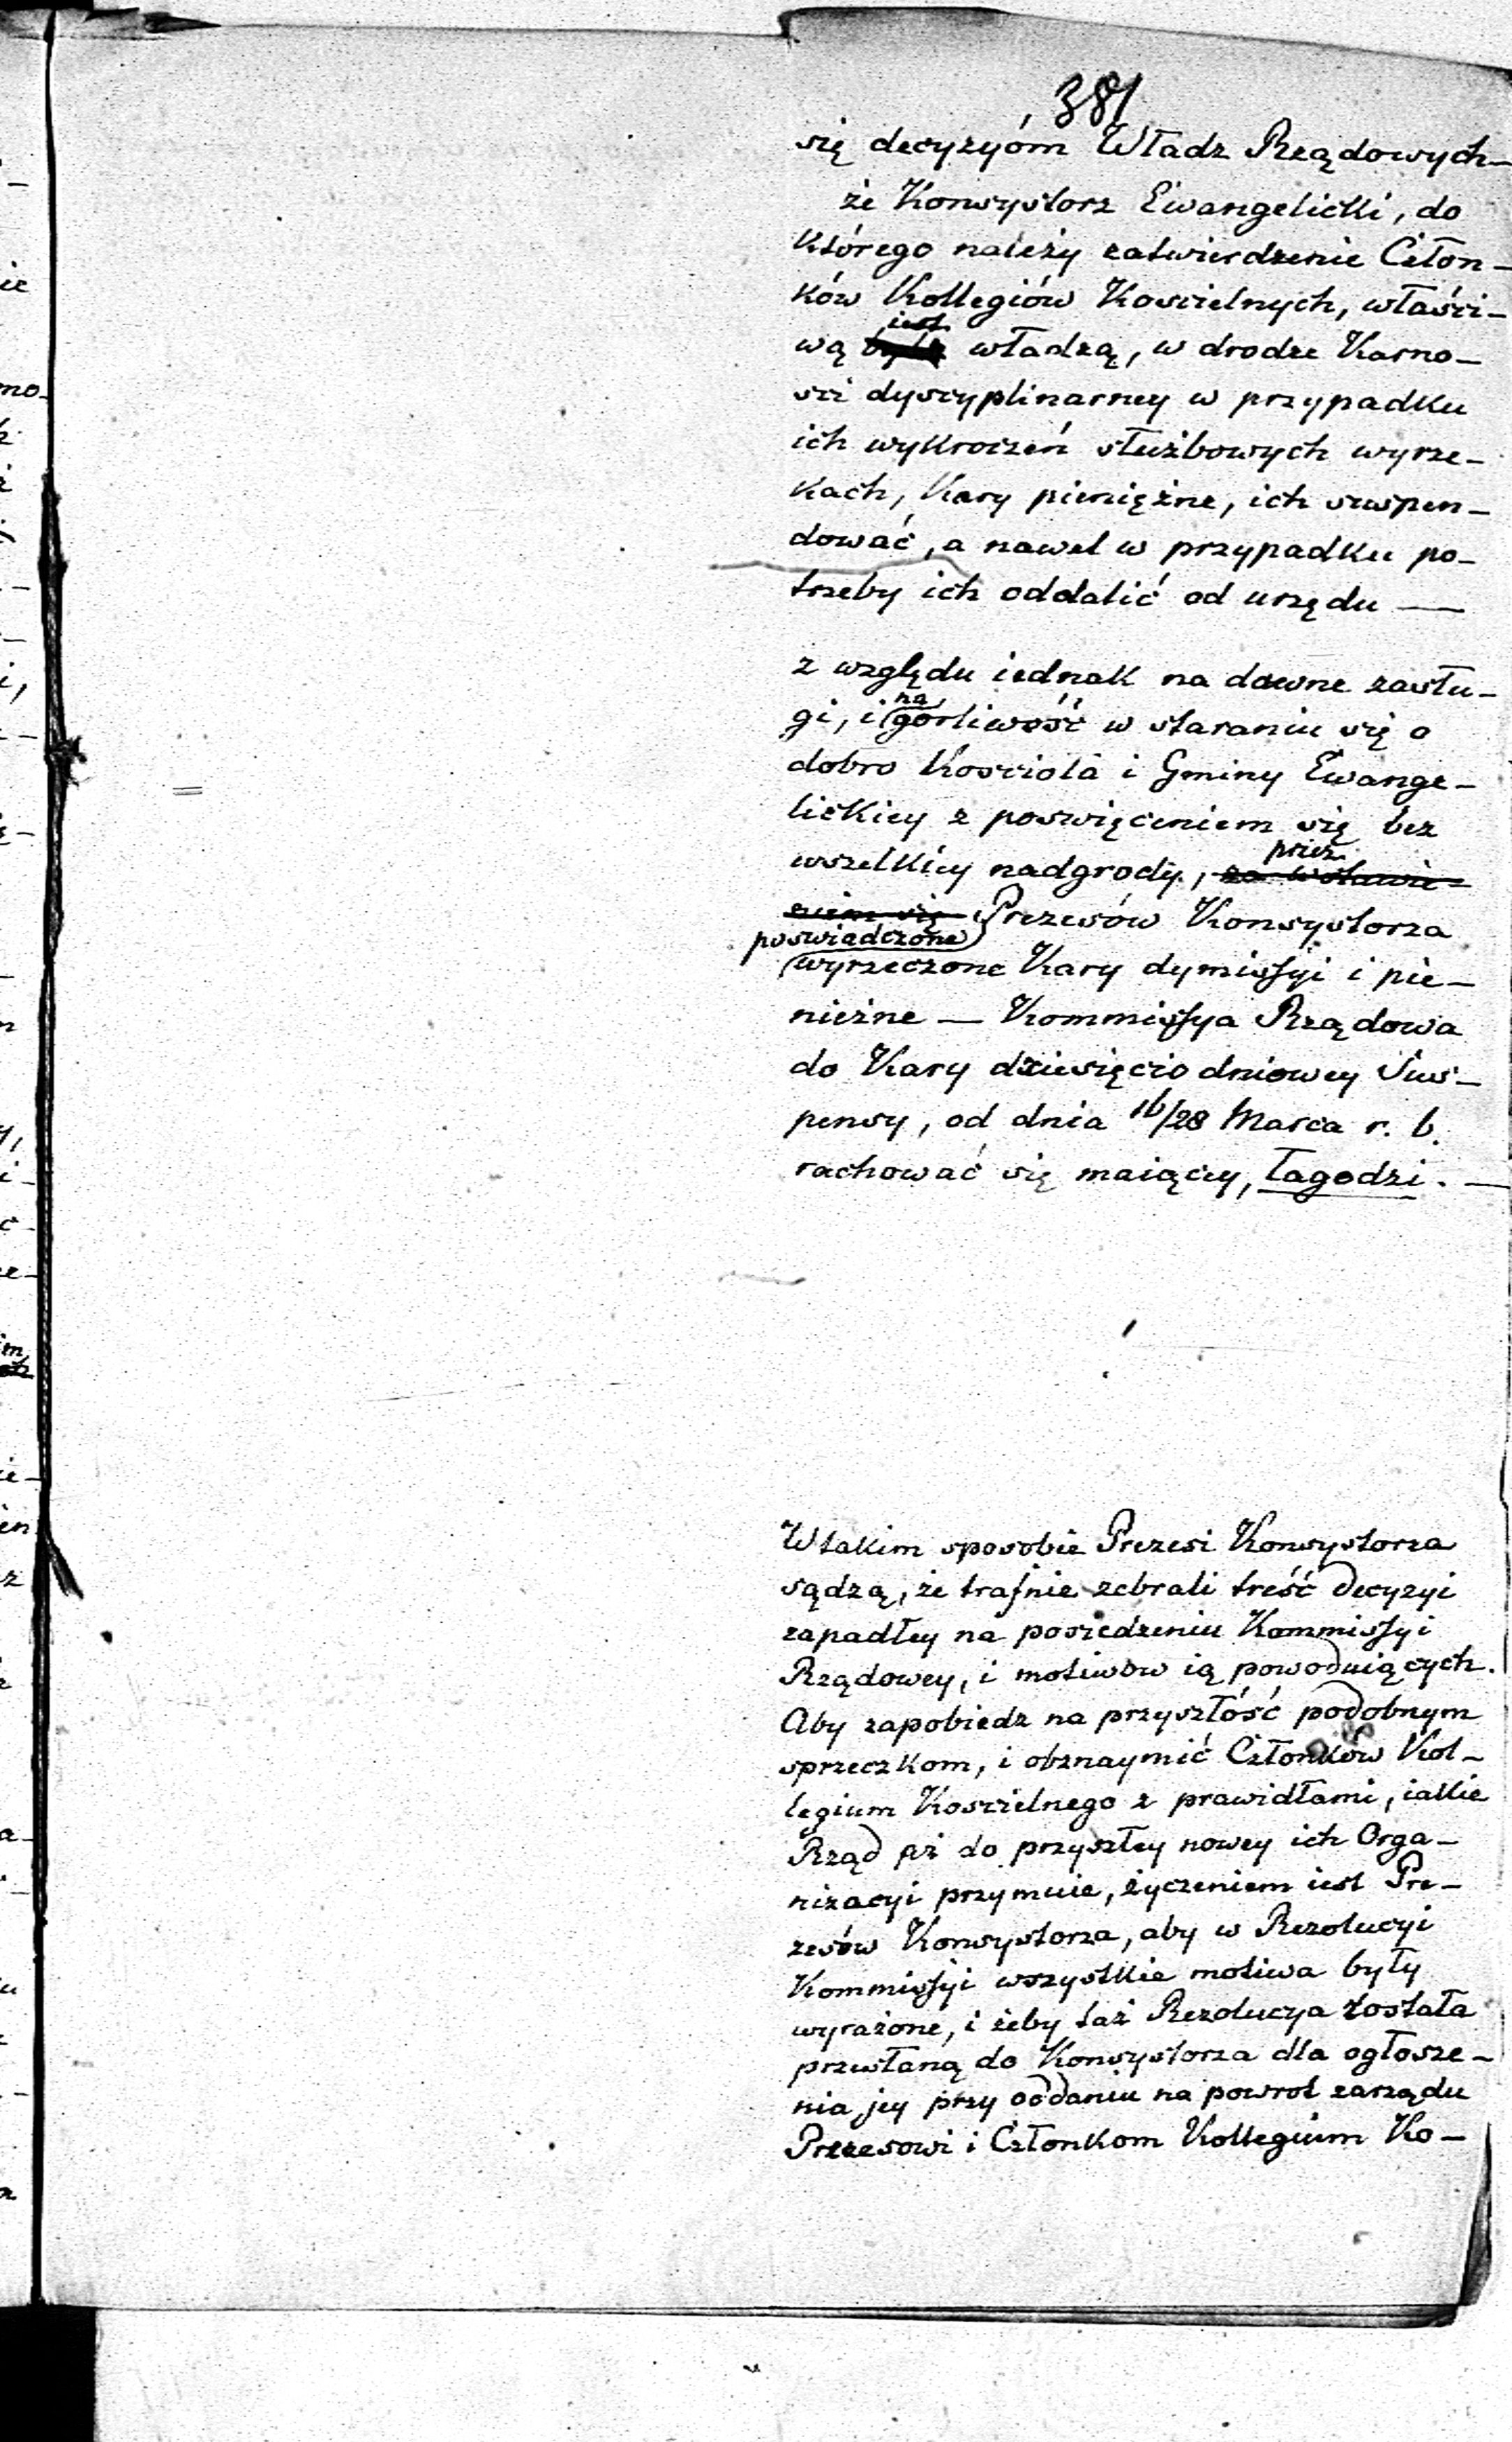 381
się decyzyóm Władz Rządowych—
że Konsystorz Ewangelicki, do
którego należy zatwierdzenie Człon—
ków Kollegiów Kościelnych, właści—
iest
wą władzą, w drodze Karno—
sci dyscyplinarney w przypadku
ich wykroczeń służbowych wyrze—
kach, Kary pieniężne, ich suspen—
dować, a nawet w przypadku po—
trzeby ich oddalić od urzędu —
z względu iednak na dawne zasłu—
na
gi, i gorliwość w staraniu się o
dobro Kosciola i Gminy Ewange—
lickiey z poswięceniem się bez
przez
wszelkiey nadgrody, za wstawie—
niem się Prezesów Konsystorza
poswiadczone
wyrzeczone Kary dymissyi i pie—
nieżne — Kommissya Rządowa
do Kary dziesięcio dniowey Sus—
pensy, od dnia 16/28 Marca r. b.
rachować się maiącey, łagodzi. —
W takim sposobie Prezesi Konsystorza
sądzą, że trafnie zebrali treść decyzyi
zapadłey na posiedzeniu Kommissyi
Rządowey, i motiwów ią powoduiących.
Aby zapobiedz na przyszłość podobnym
sprzeczkom, i obznaymić Członków Kol—
legium Koscielnego z prawidłami, iakie
Rząd aż do przyszłey nowey ich Orga—
nizacyi przymuie, życzeniem iest Pre—
zesów Konsystorza, aby w Rezolucyi
Kommissyi wszystkie motiwa były
wyrażone, i żeby taż Rezolucya została
przesłaną do Konsystorza dla ogłosze—
nia jey przy oddaniu na powrot zarządu
Prezesowi i Członkom Kollegium Ko—